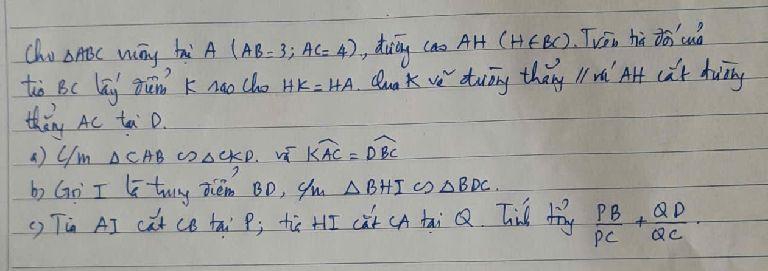 Cho ΔABC vuông tại A (AB=3; AC=4), đường cao AH (H∈BC). Trên tia đối của
tia BC lấy điểm K sao cho HK=HA. Qua K vẽ đường thẳng // với AH cắt đường
thẳng AC tại D.
a) C/m ΔCAB ∽ ΔCKD. và \widehat{KAC} = \widehat{DBC}
b) Gọi I là trung điểm BD, c/m ΔBHI ∽ ΔBDC.
c) Tia AI cắt CB tại P; tia HI cắt CA tại Q. Tính tổng \frac{PB}{PC} + \frac{QD}{QC}.